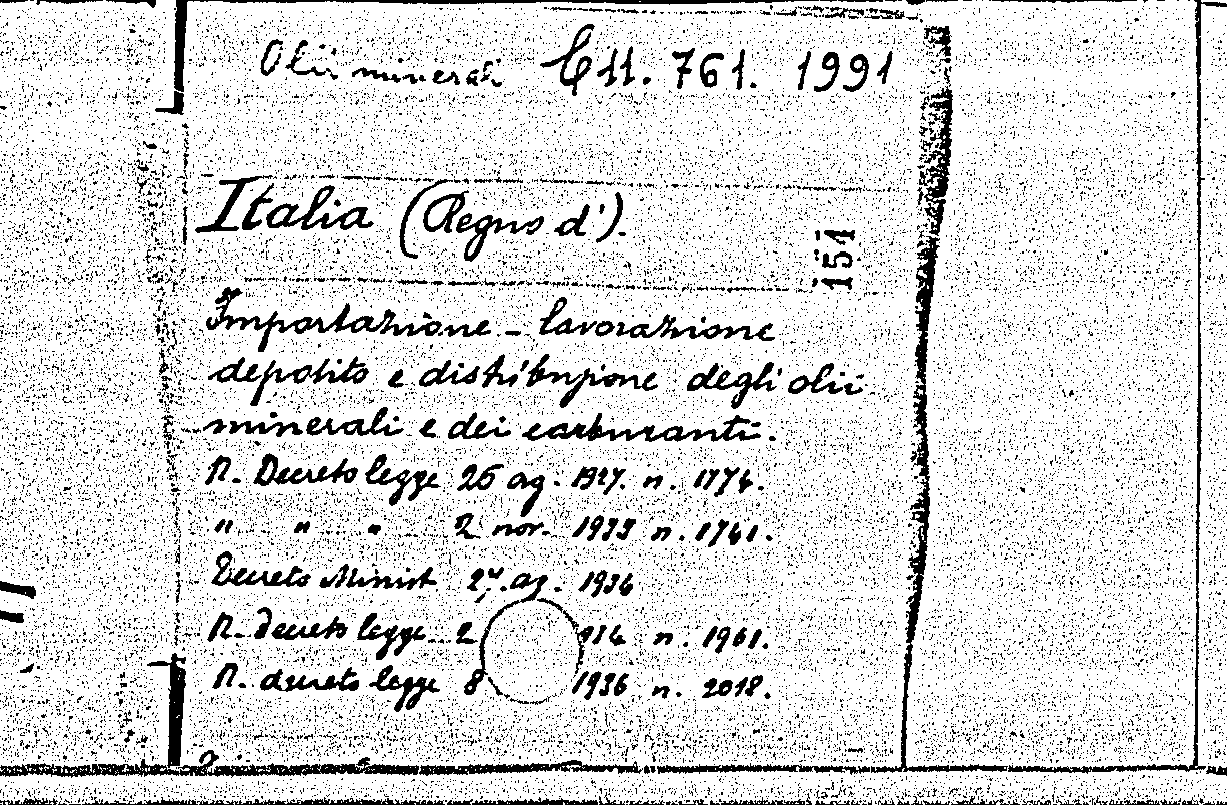 Olii minerali C11. 761. 1991
Italia (Regno d').
151
Importazione - lavorazione
deposito e distribuzione degli olii
minerali e dei carburanti.
R. Decreto legge ag. 1927. n. 1774.
" " " 2 nov. 1933 n. 1741.
Decreto Minist ag. 1936
R. decreto legge 2 n. 1961.
R. decreto legge 8 1936 n. 2018.